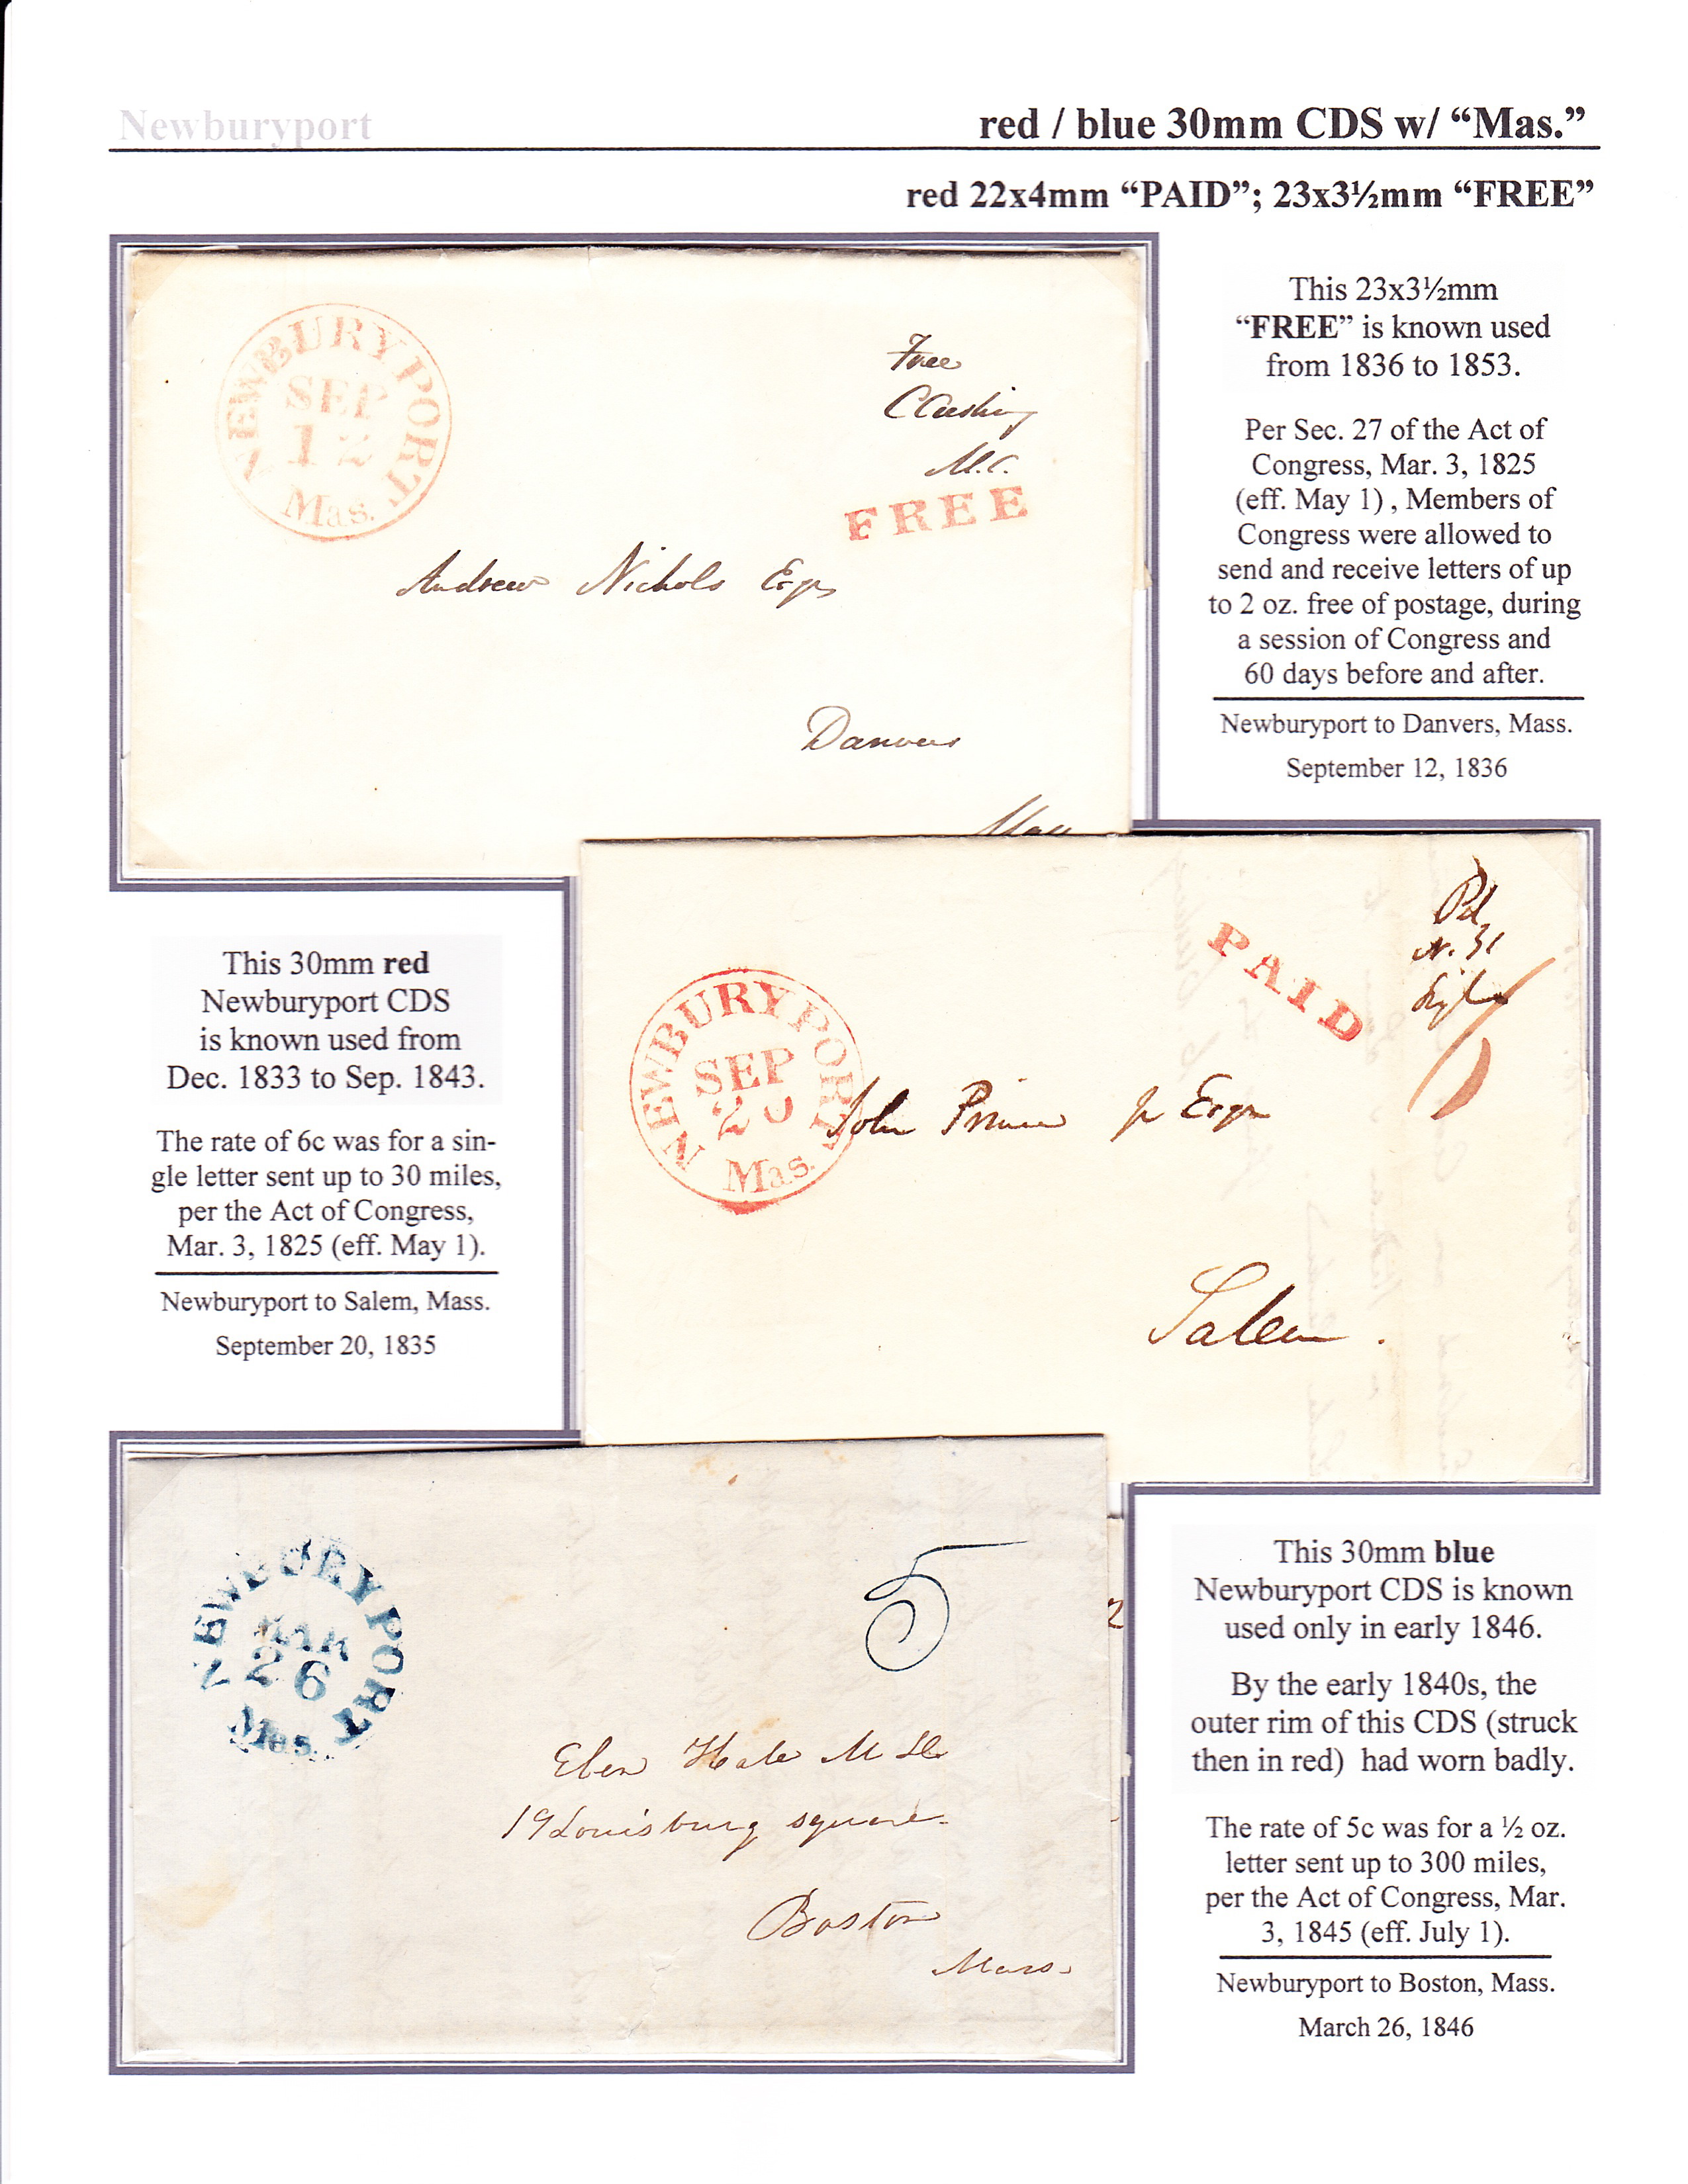 Newburyport
red / blue 30mm CDS w/ “Mas.”
red 22x4mm “PAID”; 23x3½mm “FREE”
NEWBURYPORT
SEP
12
Mas.
Free
C Cushing
M.C.
FREE
Andrew Nichols Esqr
Danvers
Mass
This 23x3½mm
“FREE” is known used
from 1836 to 1853.
Per Sec. 27 of the Act of
Congress, Mar. 3, 1825
(eff. May 1) , Members of
Congress were allowed to
send and receive letters of up
to 2 oz. free of postage, during
a session of Congress and
60 days before and after.
Newburyport to Danvers, Mass.
September 12, 1836
This 30mm red
Newburyport CDS
is known used from
Dec. 1833 to Sep. 1843.
The rate of 6c was for a sin-
gle letter sent up to 30 miles,
per the Act of Congress,
Mar. 3, 1825 (eff. May 1).
Newburyport to Salem, Mass.
September 20, 1835
NEWBURYPORT
SEP
20
Mas.
PAID
Pd
John Prince jr Esqr
Salem.
NEWBURYPORT
MAR
26
Mas.
5
Eben Hale
19 Louisburg square
Boston
Mass.
This 30mm blue
Newburyport CDS is known
used only in early 1846.
By the early 1840s, the
outer rim of this CDS (struck
then in red) had worn badly.
The rate of 5c was for a ½ oz.
letter sent up to 300 miles,
per the Act of Congress, Mar.
3, 1845 (eff. July 1).
Newburyport to Boston, Mass.
March 26, 1846